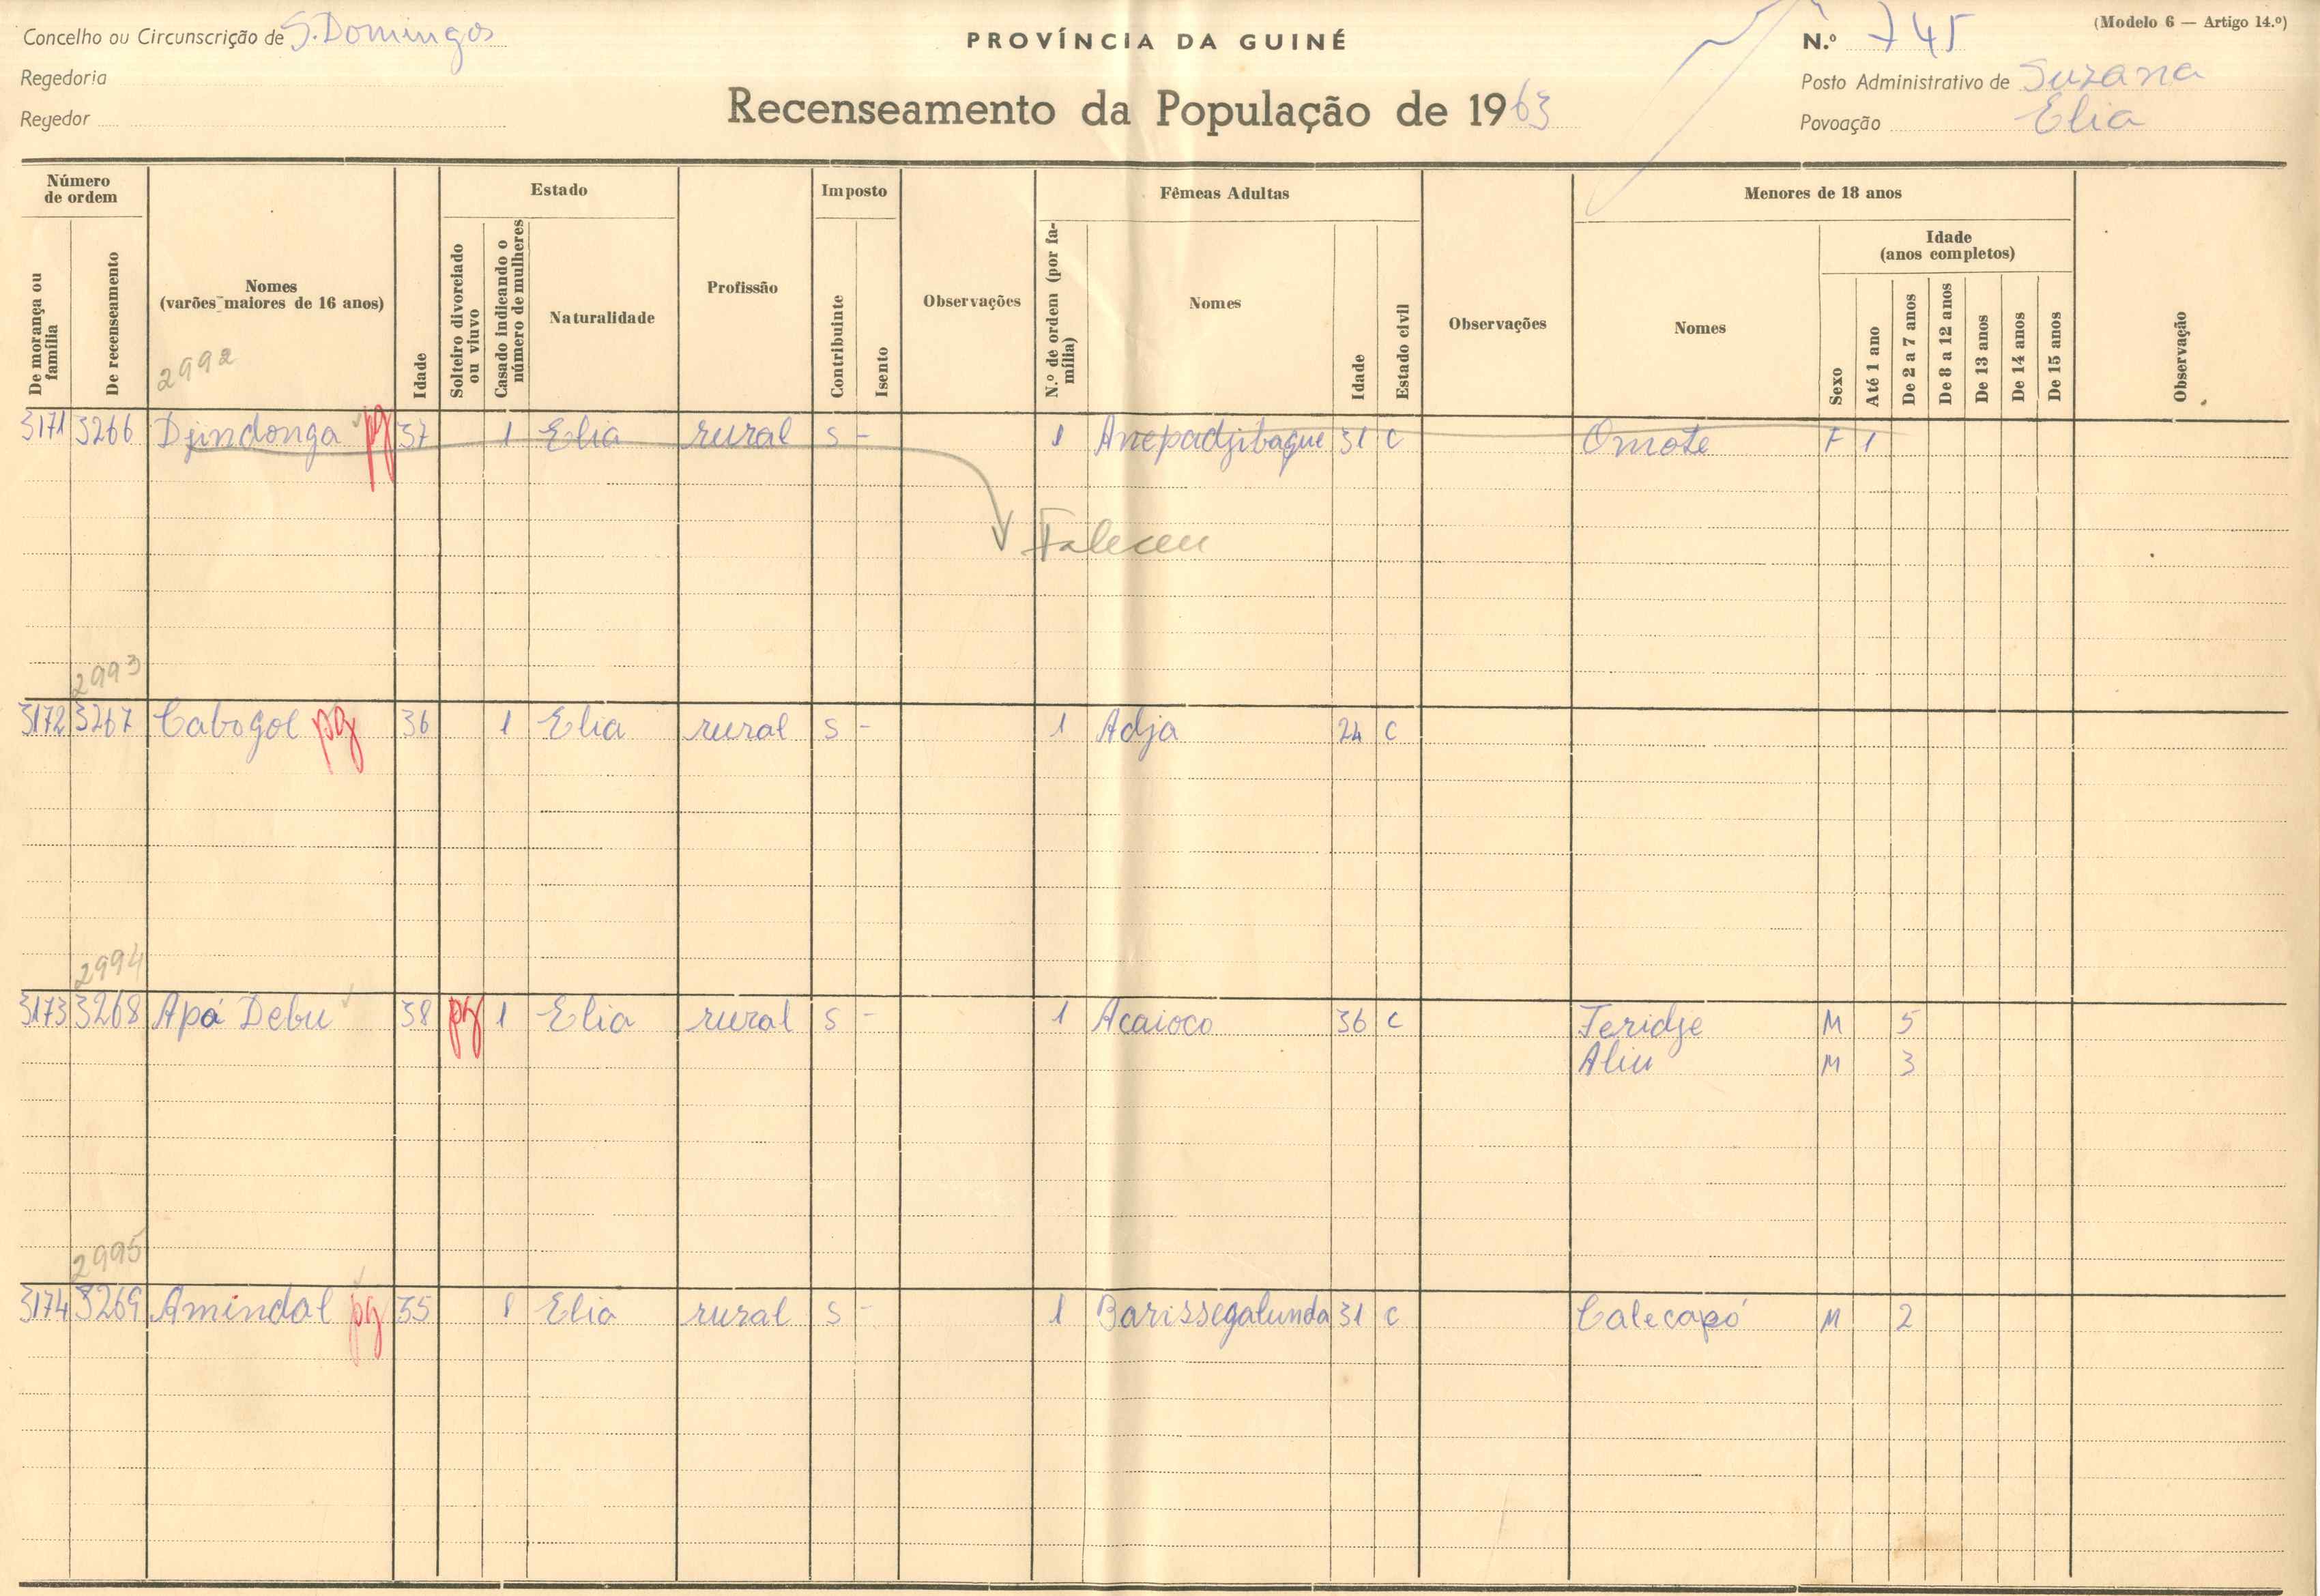 (Modelo 6 — Artigo 14.º)
Concelho ou Circunscrição de S. Domingos
PROVÍNCIA DA GUINÉ
N.º 745
Regedoria
Recenseamento da População de 1963
Posto Administrativo de Suzana
Regedor
Povoação Elia
Número de ordem
Estado
Imposto
Fêmeas Adultas
Menores de 18 anos
De morança ou família
De recenseamento
Nomes
(varões maiores de 16 anos)
Idade
Solteiro divorciado ou viuvo
Casado indicando o número de mulheres
Naturalidade
Profissão
Contribuinte
Isento
Observações
N.º de ordem (por família)
Nomes
Idade
Estado civil
Observações
Nomes
Idade
(anos completos)
Sexo
Até 1 ano
De 2 a 7 anos
De 8 a 12 anos
De 13 anos
De 14 anos
De 15 anos
Observação
2992
3171 3266 Djindonga pg 37 1 Elia rural S - 1 Anepadjibaque 31 C Omote F 1
Faleceu
2993
3172 3267 Cabogol pg 36 1 Elia rural S - 1 Adja 24 C
2994
3173 3268 Apá Debu 38 pg 1 Elia rural S - 1 Acaioco 36 C Teridje M 5
Aliu M 3
2995
3174 3269 Amindal pg 35 1 Elia rural S - 1 Barissegalunda 31 C Calecapó M 2